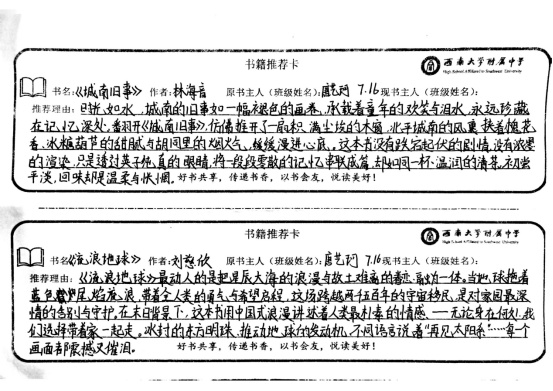 书籍推荐卡
西南大学附属中学
High School Affiliated to Southwest University
书名:《城南旧事》 作者:林海音 原书主人(班级姓名): 7.16 现书主人(班级姓名):
推荐理由:时光如水,城南的旧事如一幅褪色的画卷,承载着童年的欢笑与泪水,永远珍藏
在记忆深处,翻开《城南旧事》,仿佛推开了一扇积满尘埃的木窗,北平城南的风裹挟着槐花
香、冰糖葫芦的甜腻与胡同里的烟火气,缓缓漫进心底。这本书没有跌宕起伏的剧情,没有浓墨
的渲染,只是透过英子纯真的眼睛,将一段段零散的记忆串联成篇,却如同一杯温润的清茶,初尝
平淡,回味却是温柔与怅惘。好书共享,传递书香,以书会友,悦读美好!
书籍推荐卡
西南大学附属中学
High School Affiliated to Southwest University
书名:《流浪地球》 作者:刘慈欣 原书主人(班级姓名): 7.16 现书主人(班级姓名):
推荐理由:《流浪地球》最动人的是把星辰大海的浪漫与故土难离的眷恋融为一体。当地球拖着
蓝色尾焰流浪,带着全人类的勇气与希望启程,这场跨越两千五百年的宇宙移民,是对家园最深
情的告别与守护,在末日背景下,这本书用中国式浪漫讲述着人类最朴素的情感——无论身在何处,我
们选择带着家一起走。冰封的东方明珠、推动地球的发动机、不同语言说着“再见太阳系”……每个
画面都震撼又催泪。好书共享,传递书香,以书会友,悦读美好!